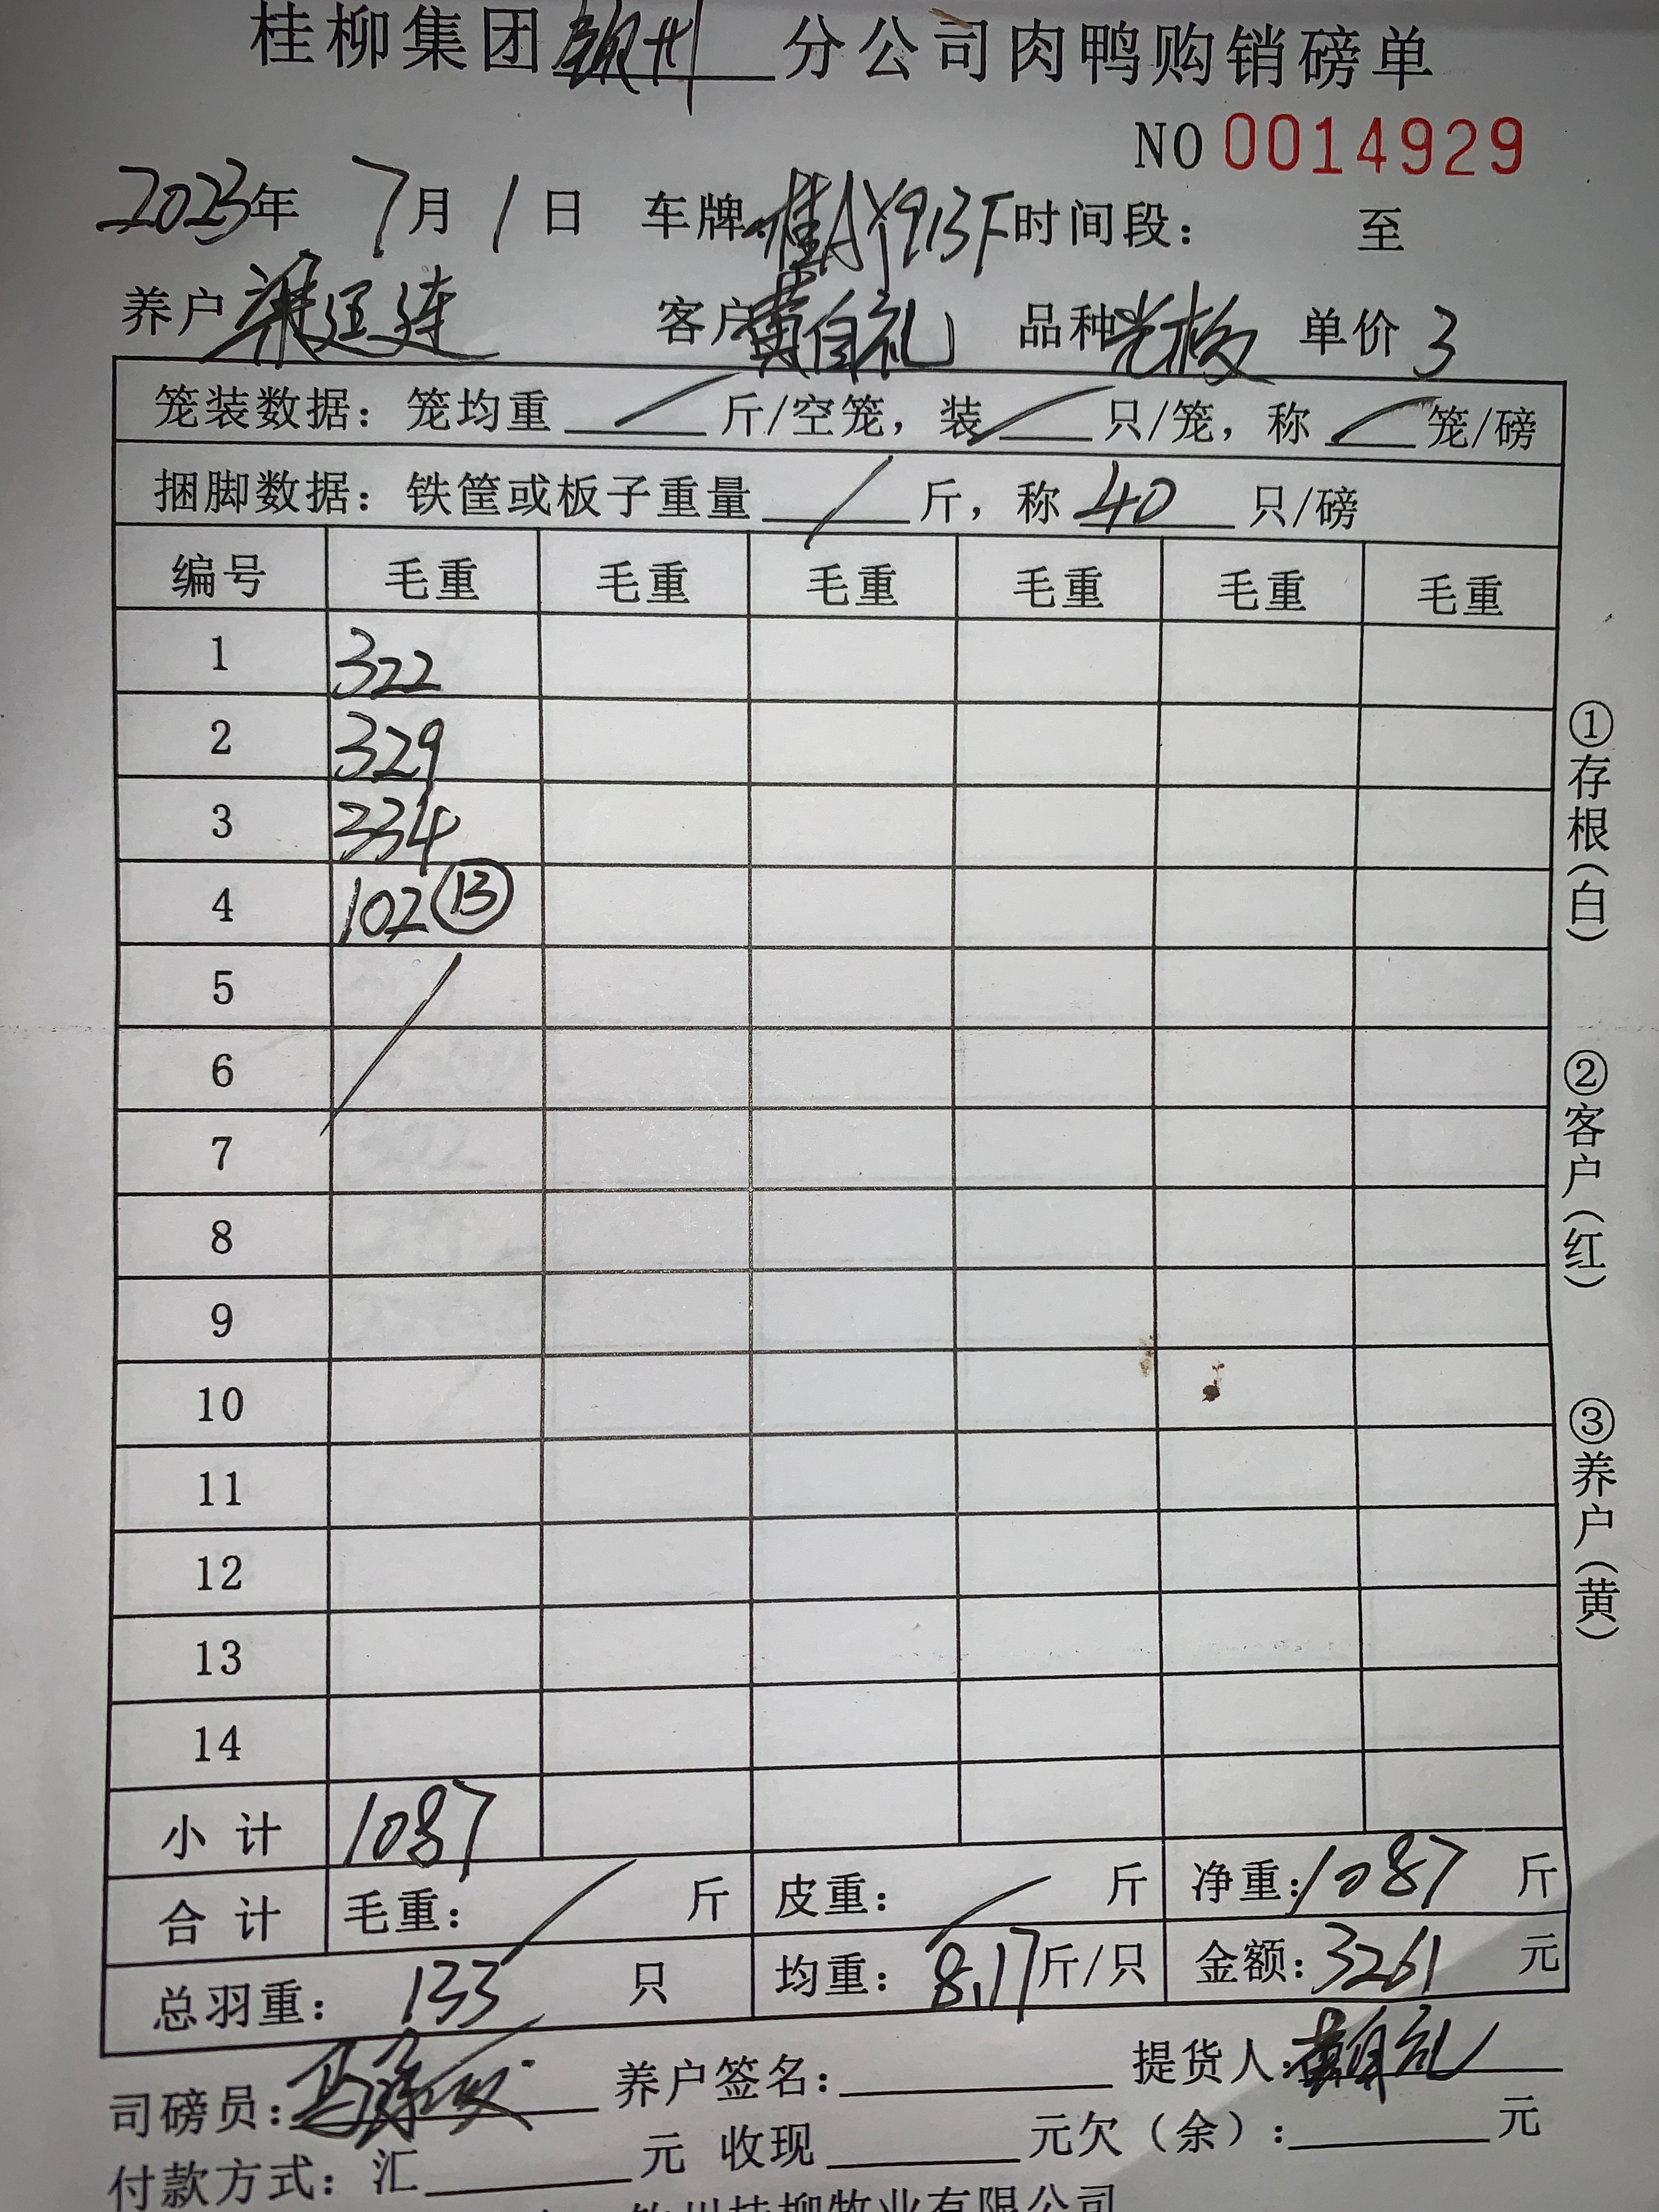 桂柳集团钦州分公司肉鸭购销磅单
NO 0014929
2023年 7月 1日 车牌:桂AY913F 时间段: 至
养户 梁廷连 客户 黄自礼 品种 光板 单价 3
笼装数据:笼均重 / 斤/空笼,装 / 只/笼,称 / 笼/磅
捆脚数据:铁筐或板子重量 / 斤,称 40 只/磅
编号 毛重 毛重 毛重 毛重 毛重 毛重
1 322
2 329
3 334
4 102 ⑬
5
6
7
8
9
10
11
12
13
14
小计 1087
合计 毛重: / 斤 皮重: / 斤 净重:1087 斤
总羽重: 133 只 均重: 8.17斤/只 金额:3261 元
司磅员: 养户签名: 提货人:黄自礼
付款方式:汇 元 收现 元欠(余): 元
钦州桂柳牧业有限公司
①存根(白)
②客户(红)
③养户(黄)